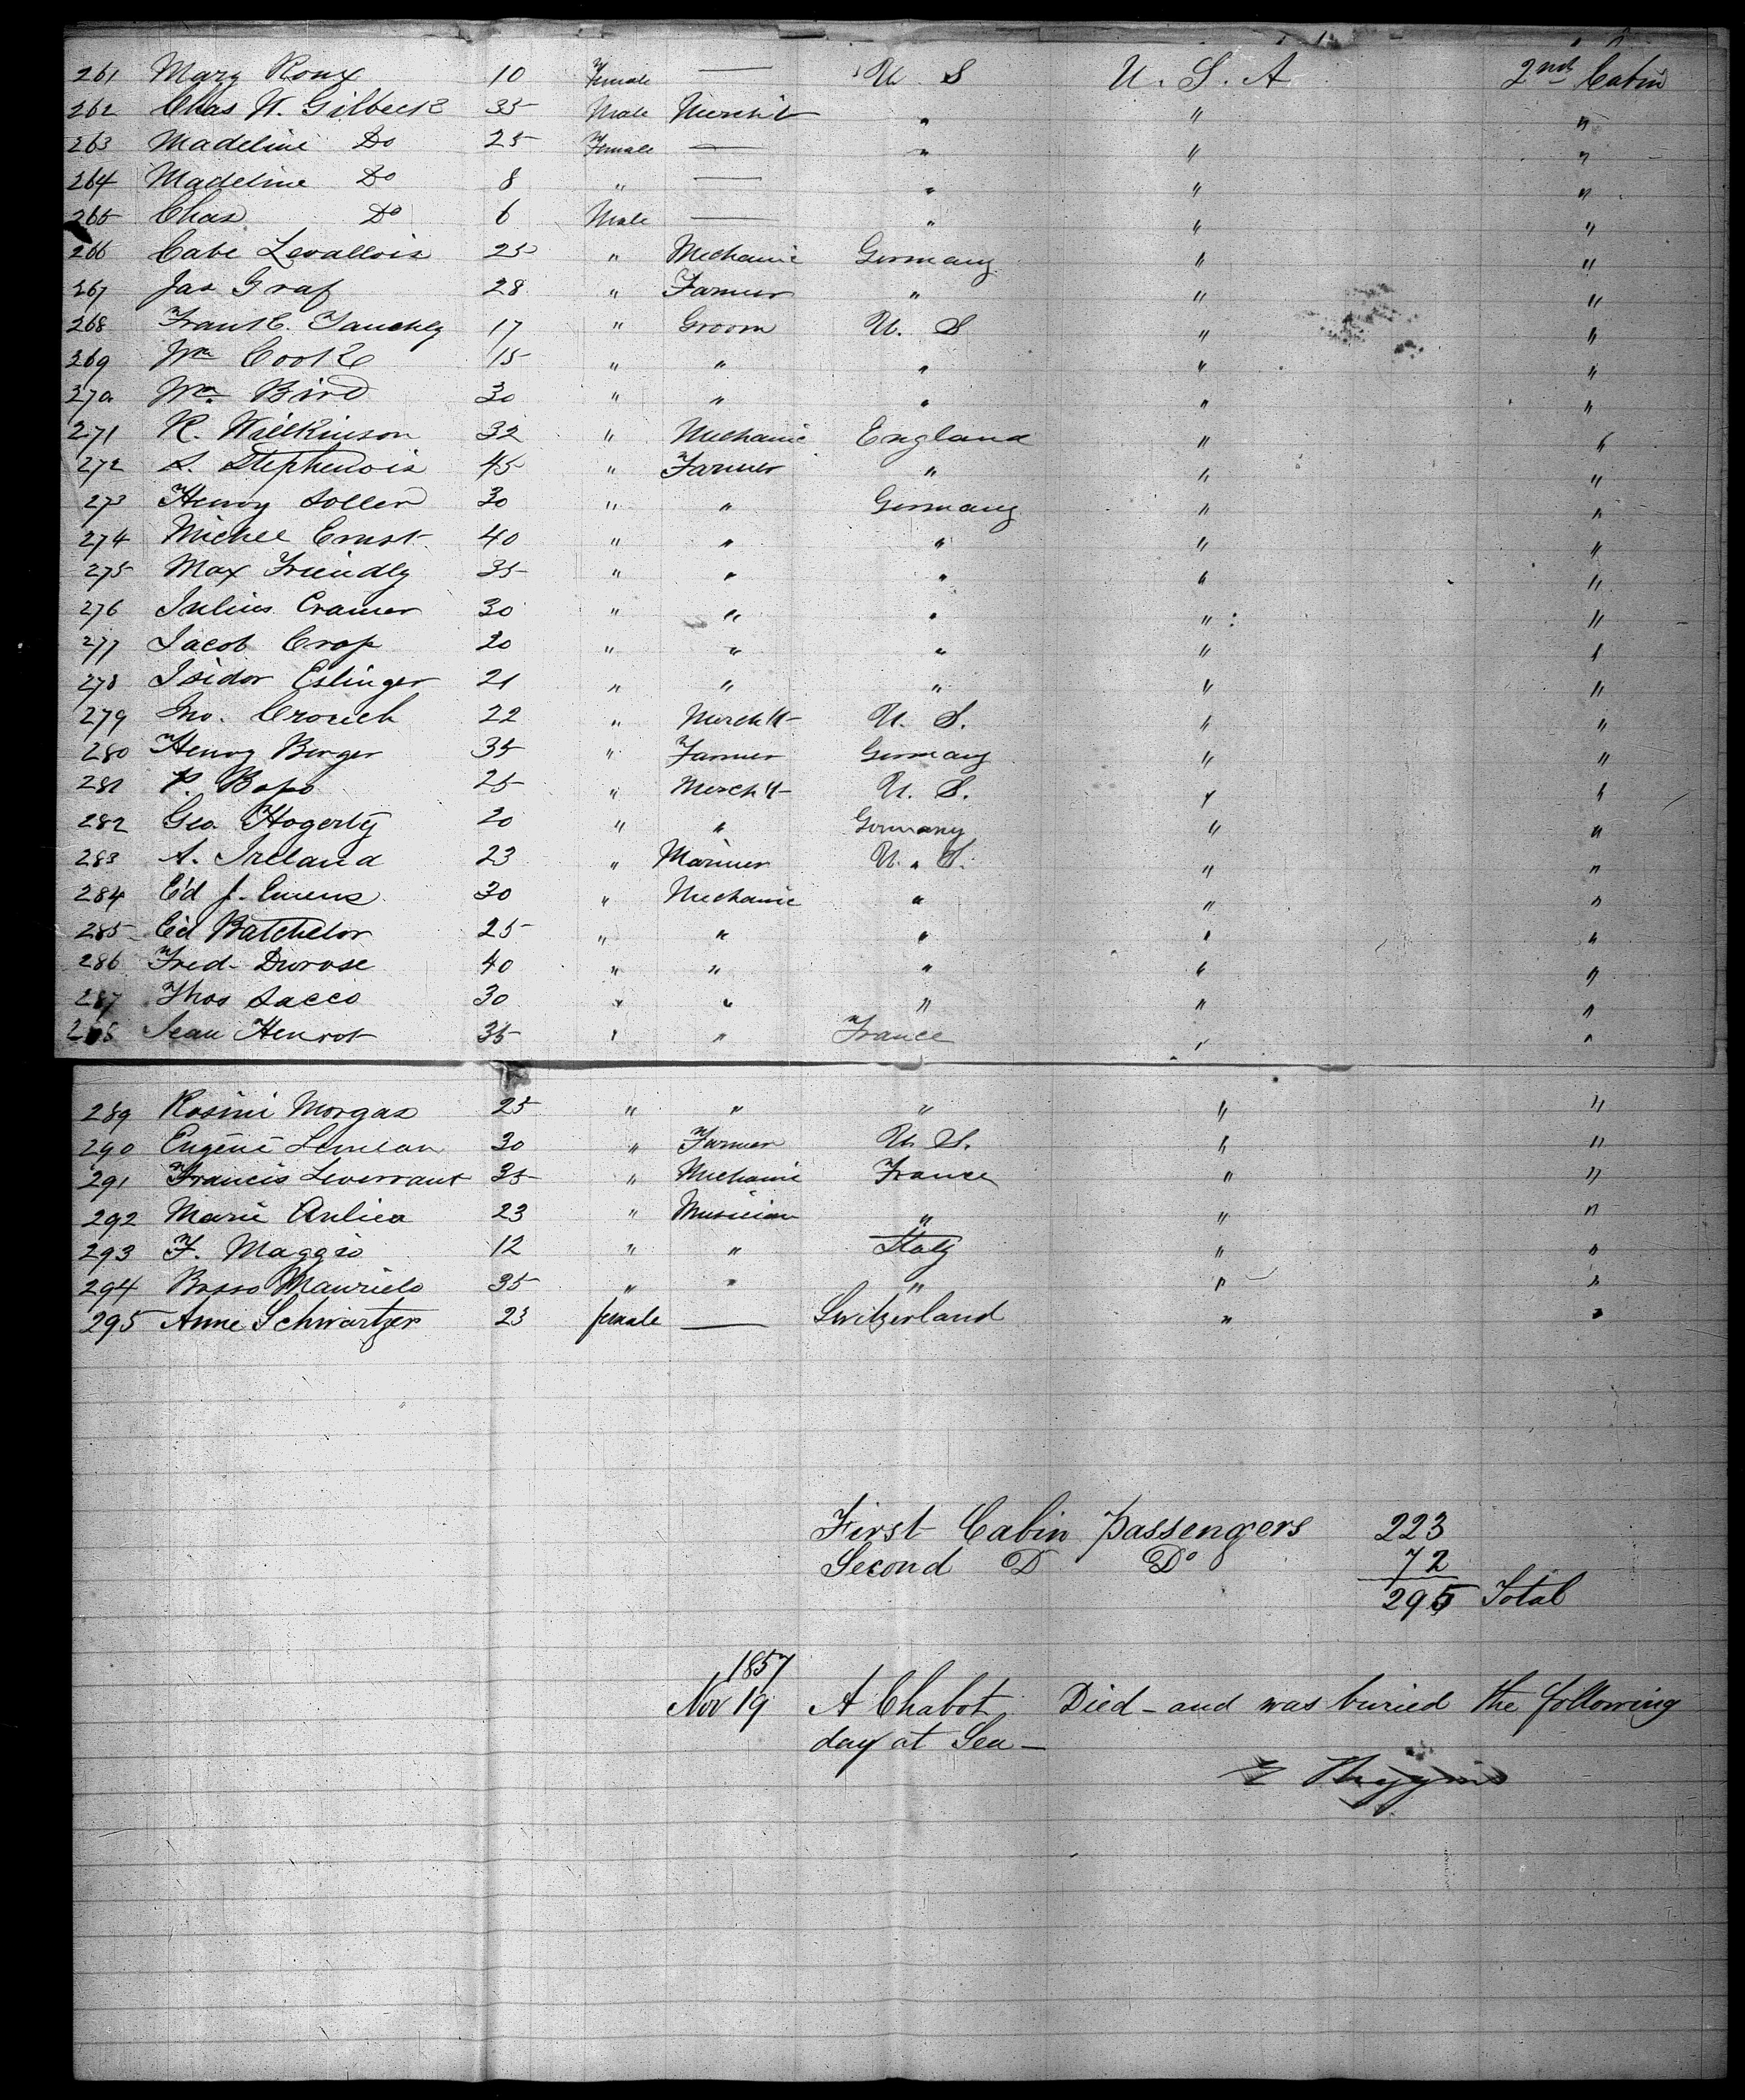 261 Mary Roux 10 Female — U S U. S. A 2nd Cabin
262 Chas W. Gilbeck 35 Male Merch't " " "
263 Madeline Do 25 Female — " " "
264 Madeline Do 8 " — " " "
265 Chas Do 6 Male — " " "
266 Cabe Levallois 25 " Mechanic Germany " "
267 Jas Graf 28 " Farmer " " "
268 17 " Groom U. S " "
269 Wm Cook 15 " " " " "
270 Wm Bird 30 " " " " "
271 R. Wilkinson 32 " Mechanic England " "
272 S. 45 " Farmer " " "
273 Henry Soller 30 " " Germany " "
274 Michel Ernst 40 " " " " "
275 Max Friendly 35 " " " " "
276 Julius Cramer 30 " " " " "
277 Jacob 20 " " " " "
278 Isidor Eslinger 21 " " " " "
279 Jno. Crouch 22 " Merch't U. S. " "
280 Henry Berger 35 " Farmer Germany " "
281 P. 25 " Merch't U. S. " "
282 Geo. Hogerty 20 " " Germany " "
283 A. Ireland 23 " Mariner U. S. " "
284 Ed J. 30 " Mechanic " " "
285 Ed Batchelor 25 " " " " "
286 Fred Durose 40 " " " " "
287 Thos Sacco 30 " " " " "
288 Jean Henrot 35 " " France " "
289 Rosini Morgas 25 " " " " "
290 Eugene 30 " Farmer U. S. " "
291 Francis Leverrant 35 " Mechanic France " "
292 Marie 23 " Musician " " "
293 F. Maggio 12 " " Italy " "
294 Basso Maurielo 35 " " " " "
295 Anne Schwartzer 23 female — Switzerland " "
First Cabin passengers 223
Second D Do 72
295 Total
1857
Nov 19 A Chabot Died - and was buried the following
day at Sea —